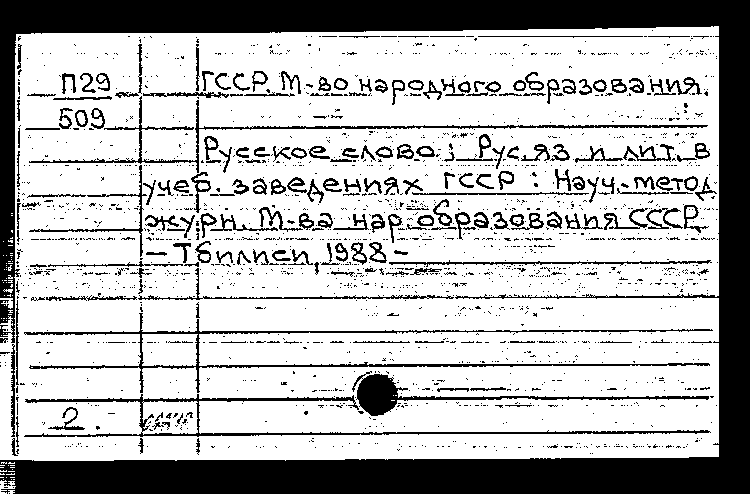 П29
509
ГССР. М-во народного образования.
Русское слово : Рус. яз. и лит. в
учеб. заведениях ГССР : Науч.-метод
журн. М-ва нар. образования СССР
– Тбилиси, 1988 –
2.